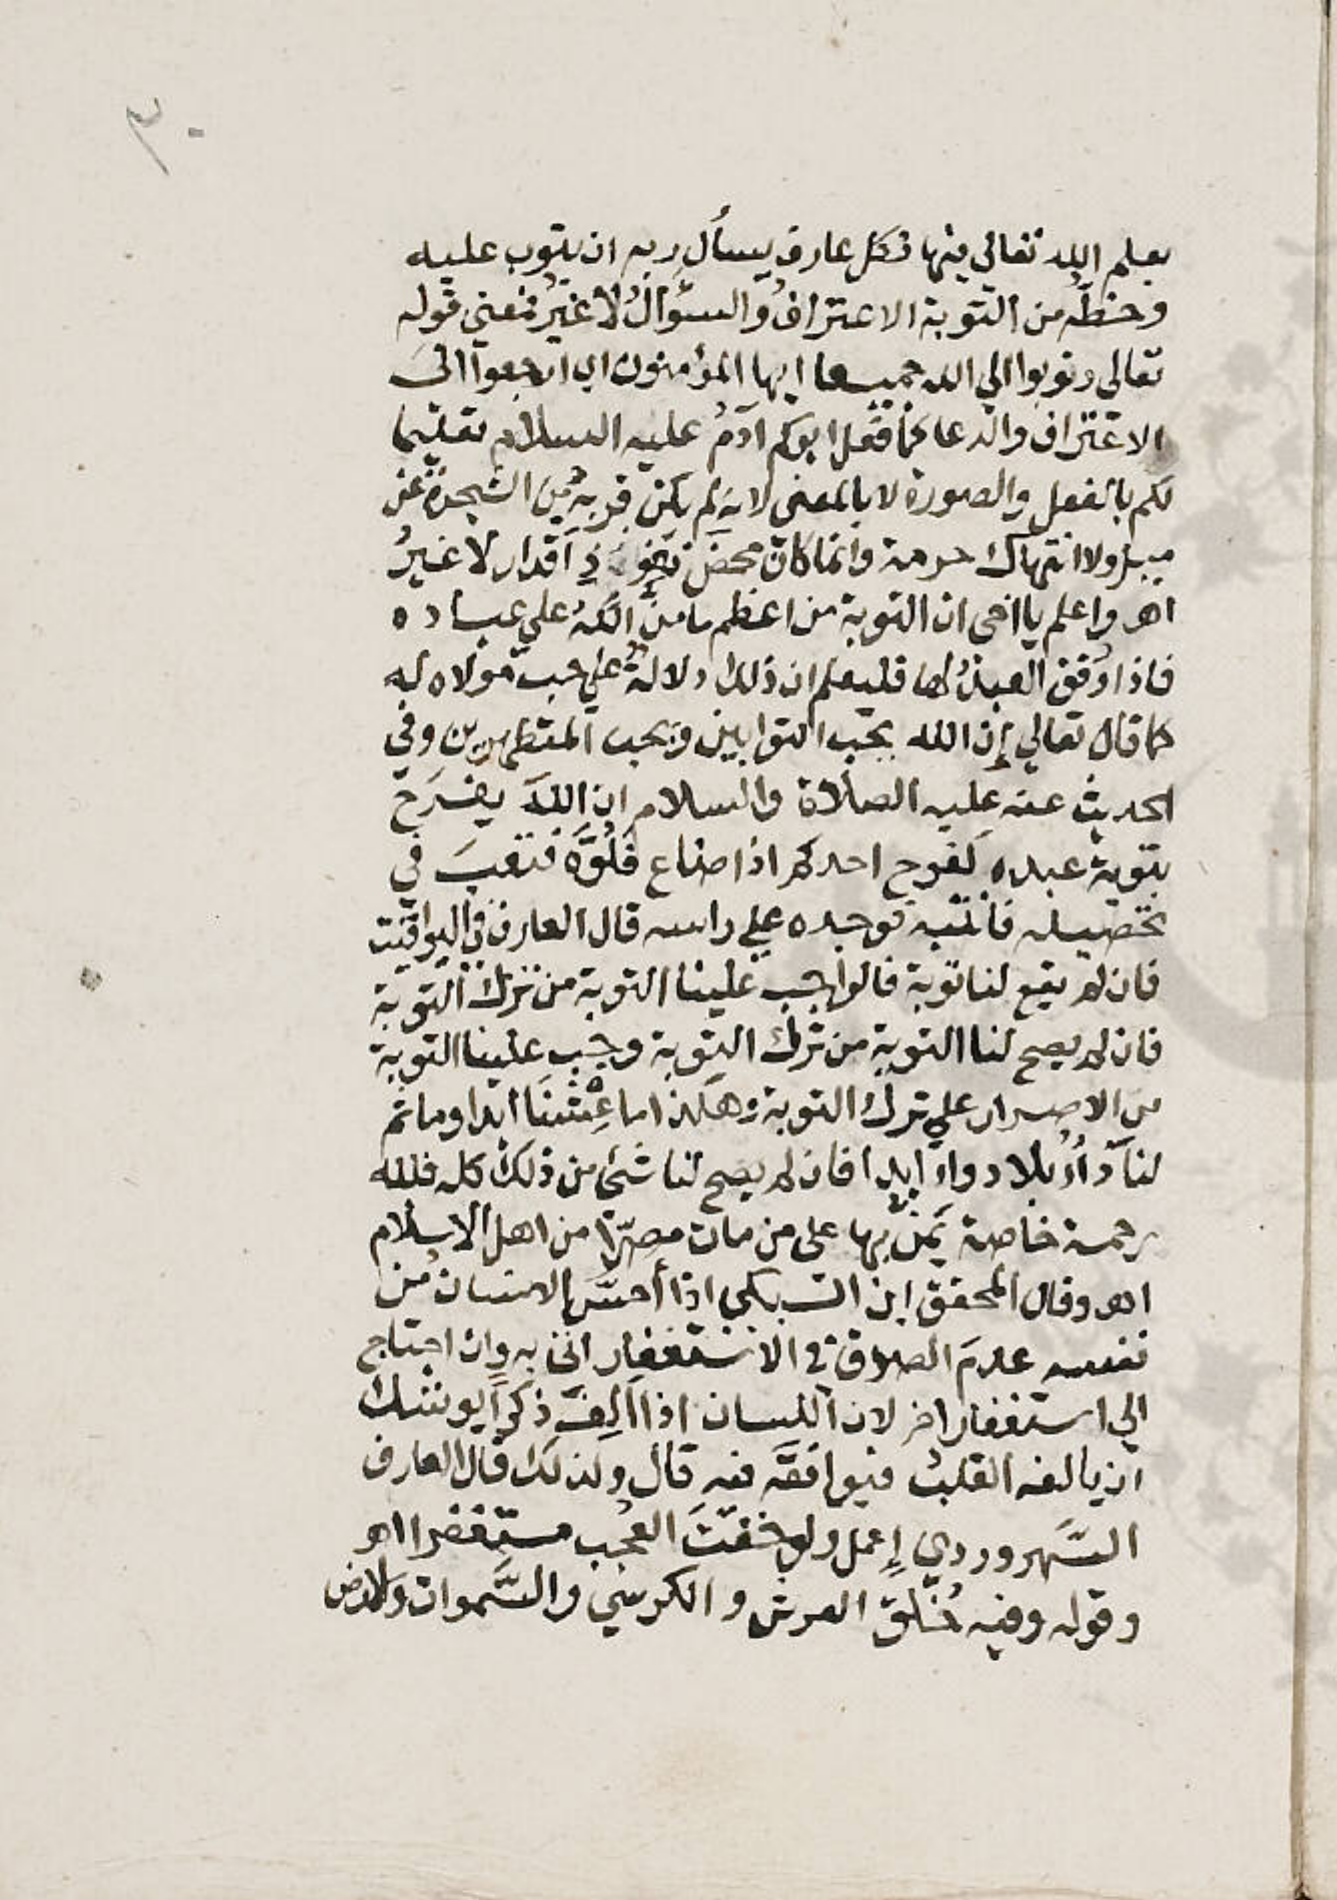 ٣٠
بعلم الله تعالي فيها فكل عارف يسأل ربه ان يتوب عليه
وحظُّه من التوبة الاعترافُ والسؤالُ لا غيرُ فمعني قوله
تعالى وتوبوا الي الله جميعا ايها المؤمنون اي ارجعوا الى
الاعتراف والدعا كما فعل ابوكم آدمُ عليه السلام تعليما
لكم بالفعل والصورة لا بالمعنى لانه لم يكن قربه من الشجرة عن
ميل ولا انتهاك حرمة وانما كان محض نفوذ اقدار لا غيرُ
اهـ واعلم يا اخي ان التوبة من اعظم ما منَّ اللهُ علي عباده
فاذا وُفق العبدُ لها فليعلم ان ذلك دلالةٌ علي حب مولاه له
كما قال تعالي إن الله يحب التوابين ويحب المتطهرين وفي
الحديث عنه عليه الصلاة والسلام ان اللهَ يفرَح
بتوبة عبده كفرح احدكم اذا ضاع فَلُوَّه فتعبَ في
تحصيله فانتبه فوجده علي راسه قال العارف في اليواقيت
فان لم يقع لنا توبة فالواجب علينا التوبة من ترك التوبة
فان لم يصح لنا التوبة من ترك التوبة وجب علينا التوبة
من الاصرار علي ترك التوبة وهكذا ما عِشْنَا ابدا وما ثم
لنا دآء بلا دواءٍ ابدا فان لم يصح لنا شئ من ذلك كله فلله
رحمة خاصة يَمُنّ بها على من مات مصرّا من اهل الاسلام
اهـ وقال المحقق ابن السبكي اذا أحسَّ الانسان من
نفسه عدمَ الصدق في الاستغفار اتى به وان احتاج
الي استغفار اخر لان اللسان اذا اَلِفَ ذكراً يوشك
ان يالفه القلبُ فيوافقَه فيه قال ولذلك قال العارف
السَّهروردي إعمل ولو خفتَ العُجب مستغفرا اهـ
وقوله وفيه خُلق العرش والكرسي والسَّموات والارض